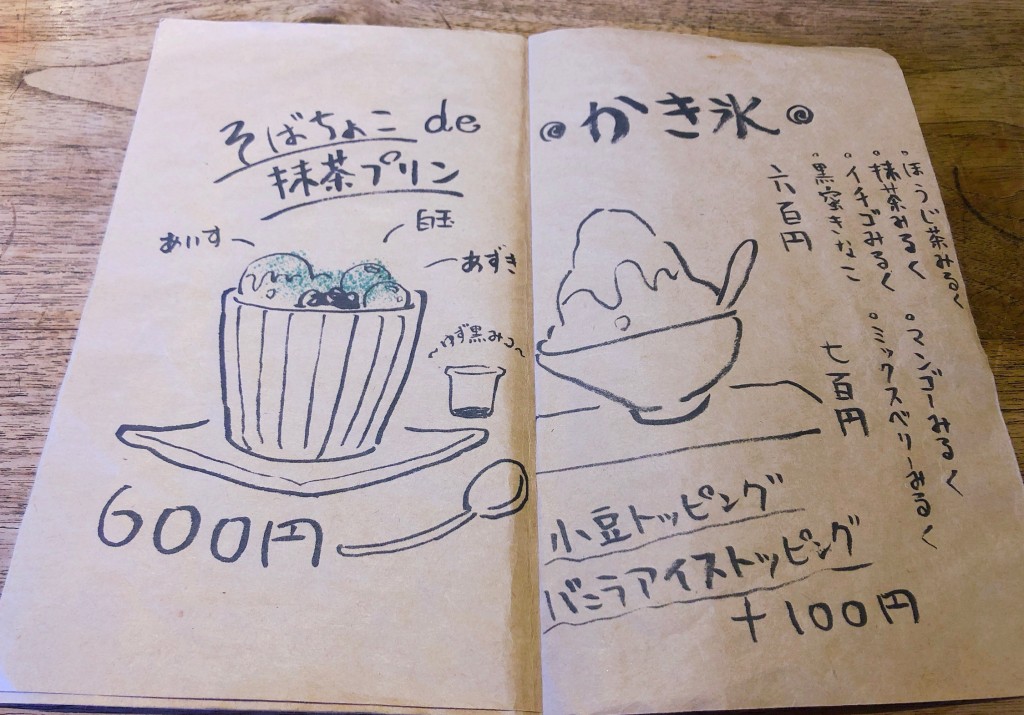 そばちょこ de
抹茶プリン
あいす
白玉
あずき
~ゆず黒みつ~
600円
かき氷
・ほうじ茶みるく
・抹茶みるく
・イチゴみるく
・黒蜜きなこ
六百円
・マンゴーみるく
・ミックスベリーみるく
七百円
小豆トッピング
バニラアイストッピング
+100円